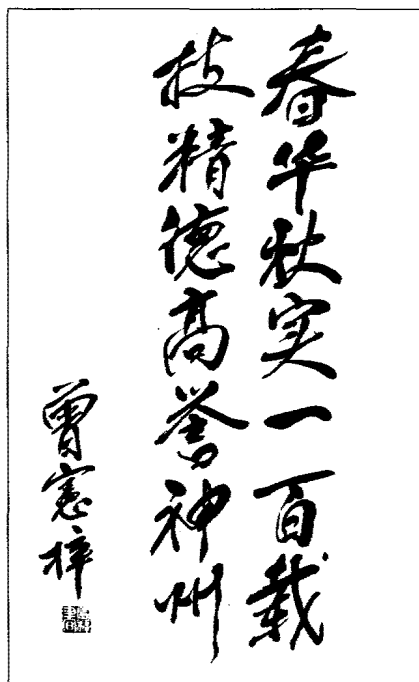 春华秋实一百载
技精德高誉神州
曾宪梓